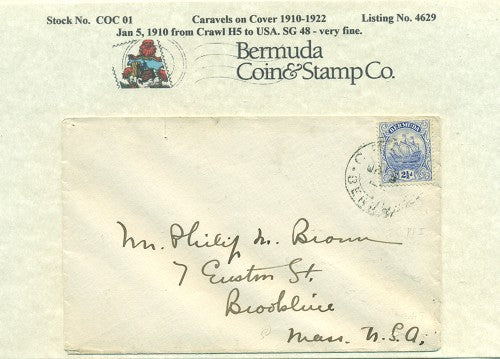 Stock No. COC 01 Caravels on Cover 1910-1922 Listing No. 4629
Jan 5, 1910 from Crawl H5 to USA. SG 48 - very fine.
Bermuda
Coin&Stamp Co.
BERMUDA
2½d
Mr. Philip M. Brown
7 Euston St.
Brookline
Mass. U.S.A.